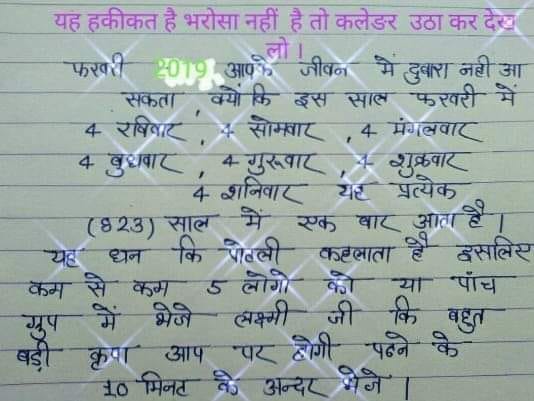 यह हकीकत है भरोसा नहीं है तो कलेङर उठा कर देख
लो ।
फरवरी 2019 आपके जीवन में दुबारा नही आ
सकता , क्यों कि इस साल फरवरी में
4 रविवार , 4 सोमवार , 4 मंगलवार
4 बुधवार , 4 गुरूवार , 4 शुक्रवार
4 शनिवार यह प्रत्येक
(823) साल में एक बार आता है ।
यह धन कि पोटली कहलाता है इसलिए
कम से कम 5 लोगो को या पांच
ग्रुप में भेजे लक्ष्मी जी कि बहुत
बड़ी कृपा आप पर होगी पढने के
10 मिनट के अन्दर भेजे ।